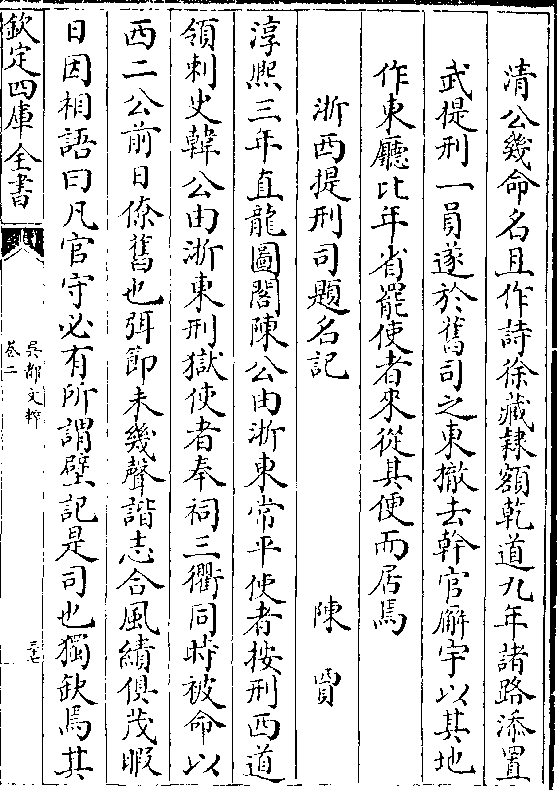 清公幾命名且作詩徐藏隷額乾道九年諸路添置
武提刑一員遂於舊司之東撤去幹官廨宇以其地
作東廳比年省罷使者來從其便而居焉
浙西提刑司題名記 陳賈
淳熙三年直龍圖閣陳公由浙東常平使者按刑西道
領刺史韓公由浙東刑獄使者奉祠三衢同時被命以
西二公前日僚舊也弭節未幾聲諧志合風績俱茂暇
日因相語曰凡官守必有所謂壁記是司也獨缺焉其
欽定四庫全書
吳都文粹
卷二
三七